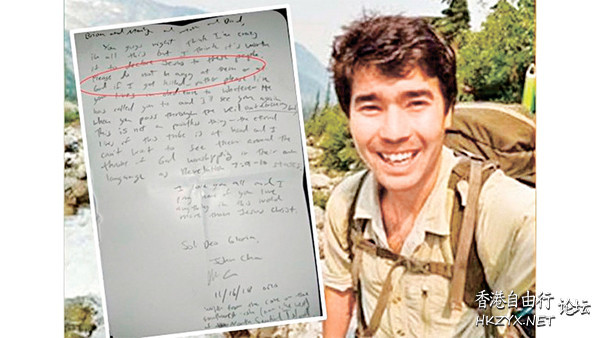 and Mom and Dad,
You guys might think I'm crazy
in all this but I think it's worth
it to declare Jesus to these people.
Please do not be angry at them or at
God if I get killed - rather please live
your lives in obedience to whatever He
has called you to and I'll see you again
when you pass through the veil.
This is not a pointless thing - the eternal
lives of this tribe is at hand and I
can't wait to see them around the
throne of God worshipping in their own
language as Revelation 7:9-10 states.
I love you all and I
pray none of you love
anything in this world
more than Jesus Christ.
Soli Deo Gloria,
John Chau
11/16/18
from the cove on the
southwest
of North Sentinel Island
香港自由行 论坛
HKZYX.NET